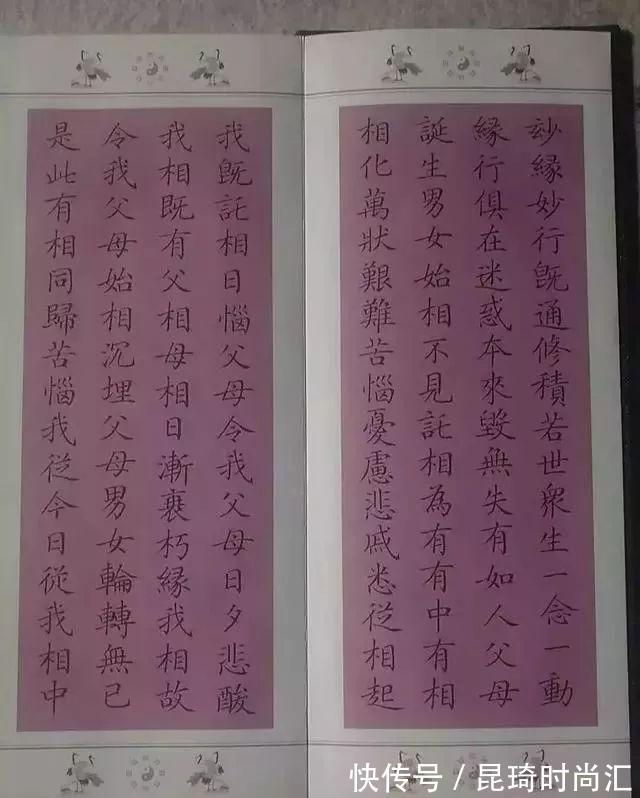 玅緣妙行旣通修積若世衆生一念一動
緣行俱在迷惑本來毀無失有如人父母
誕生男女始相不見託相為有有中有相
相化萬狀艱難苦惱憂慮悲戚悉從相起
我旣託相日惱父母令我父母日夕悲酸
我相既有父相母相日漸衰朽緣我相故
令我父母始相沉埋父母男女輪轉無已
是此有相同歸苦惱我從今日從我相中
快传号/昆琦时尚汇